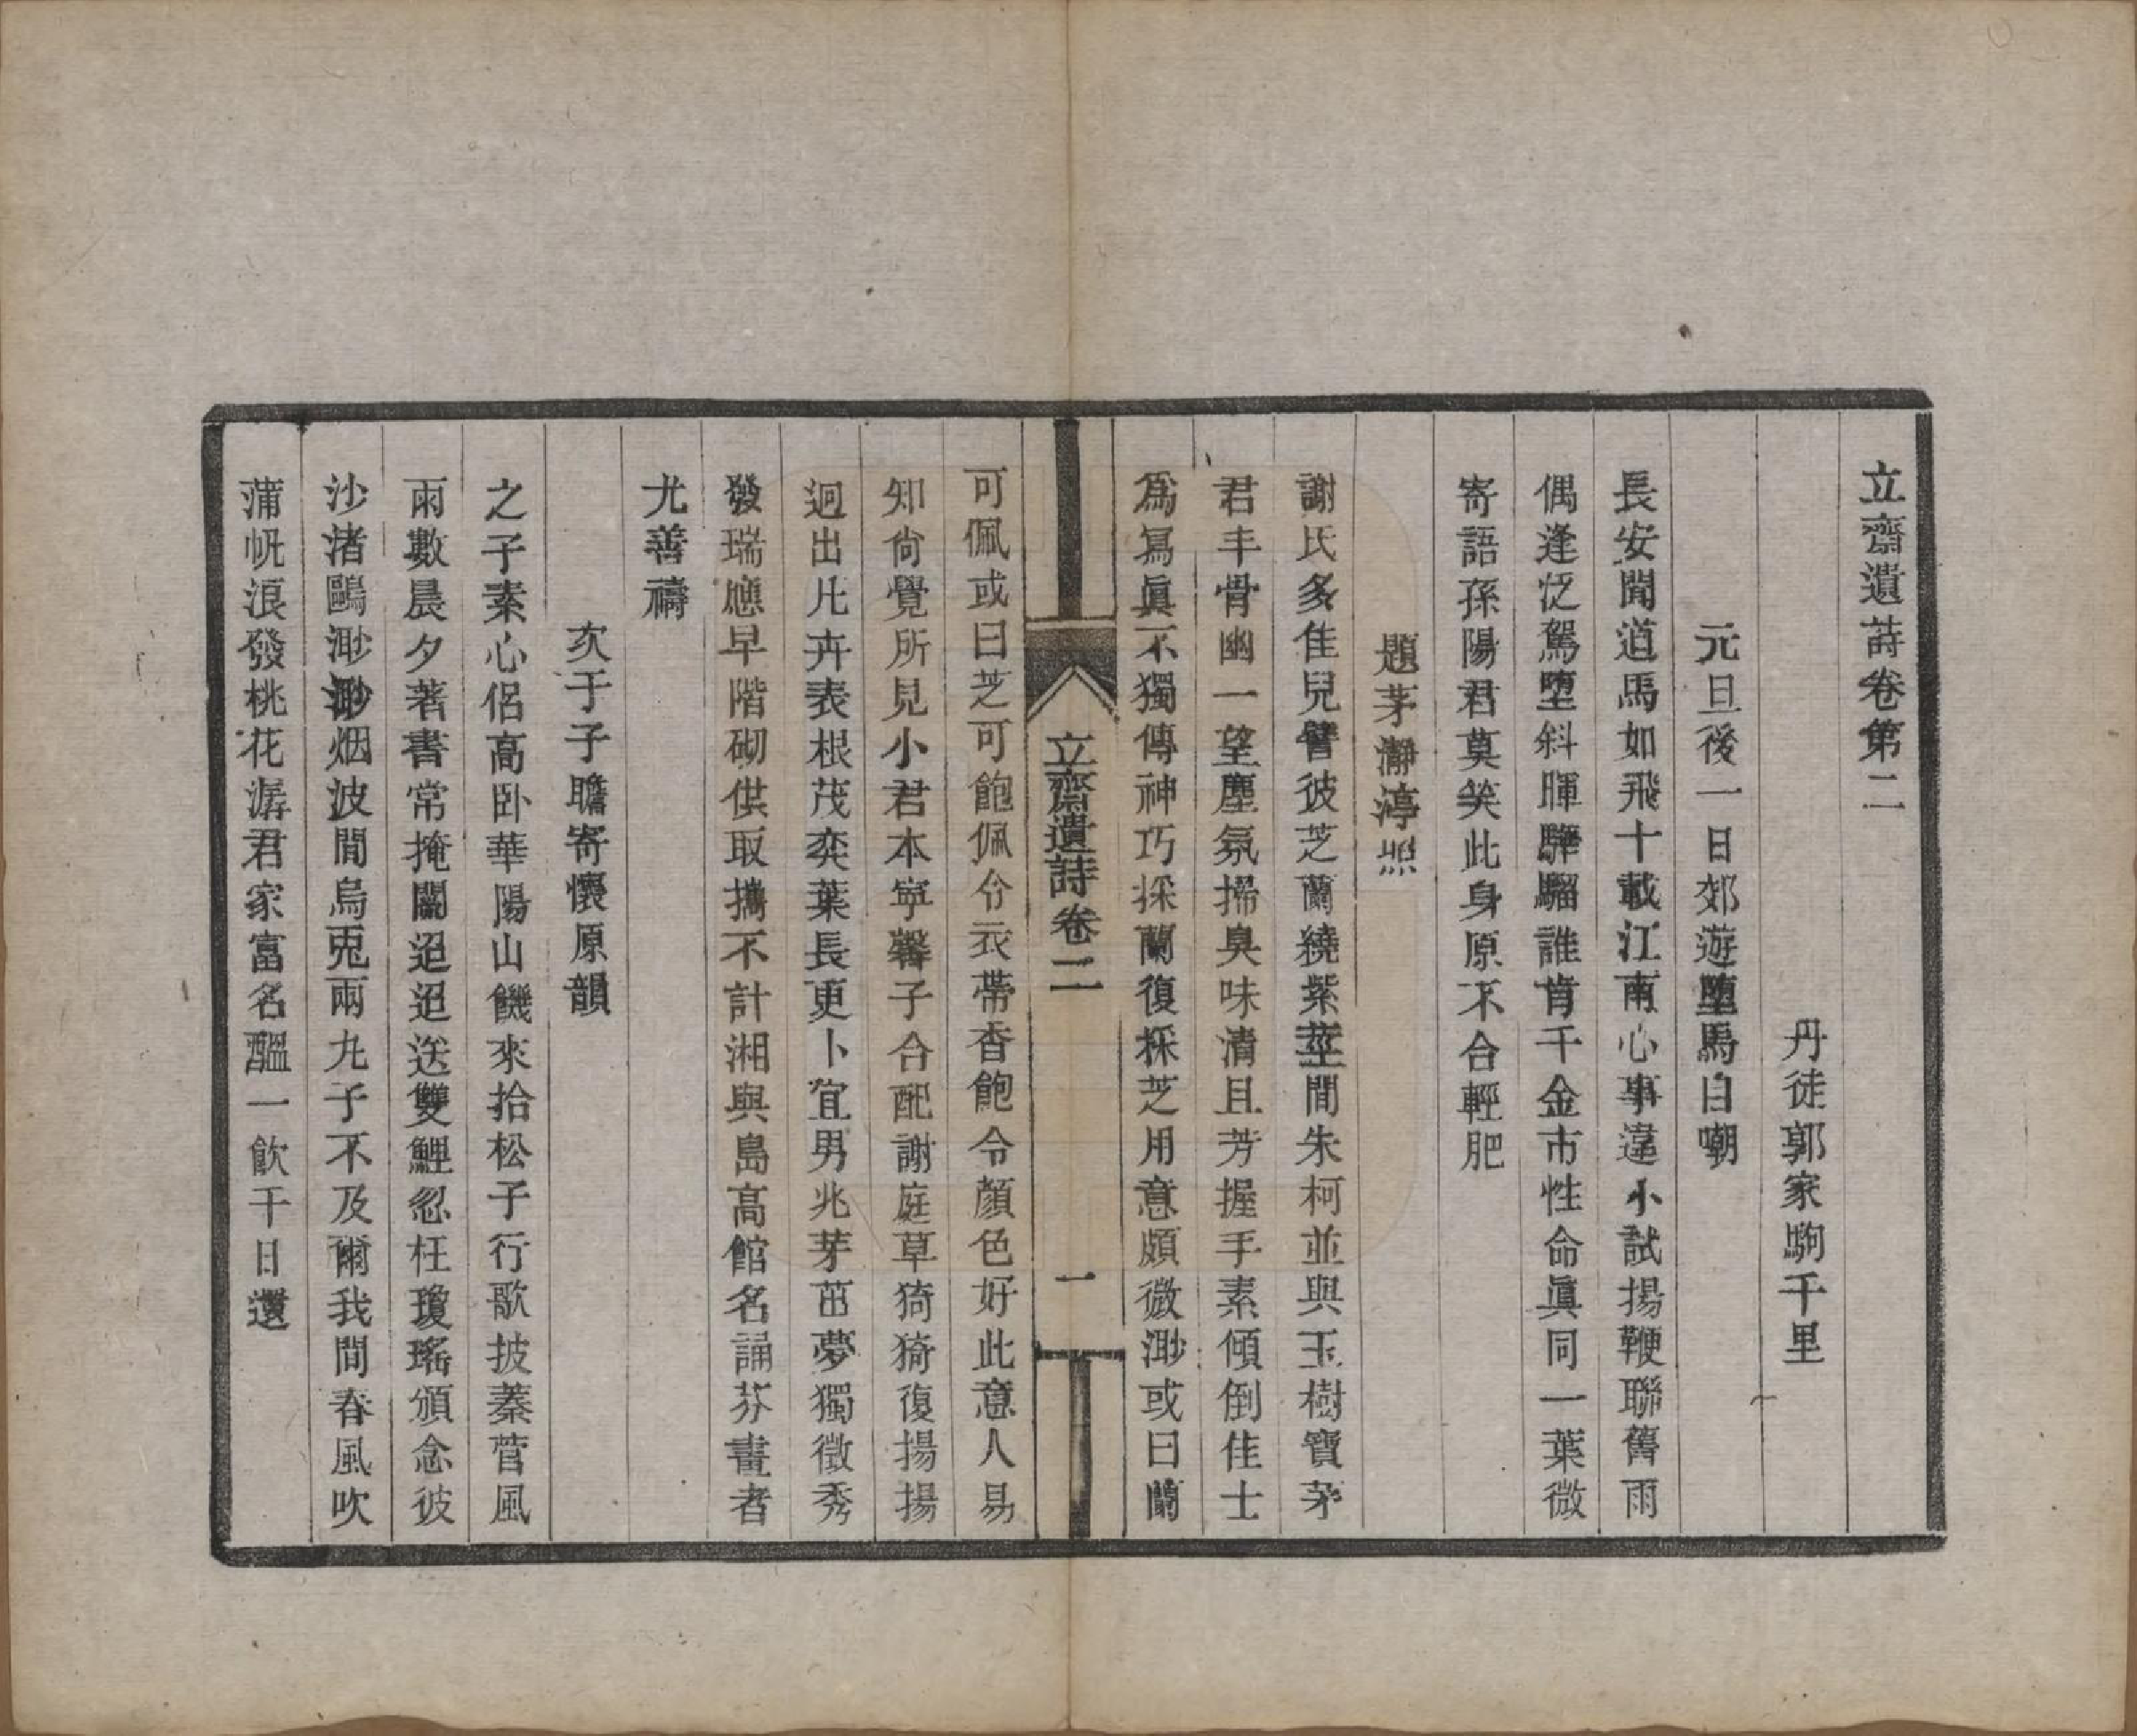 立齋遺詩卷第二
丹徒郭家駒千里
元旦後一日郊遊墮馬自嘲
長安聞道馬如飛十載江南心事違小試揚鞭聯舊雨
偶逢泛駕墮斜暉驊騮誰肯千金市性命眞同一葉微
寄語孫陽君莫笑此身原不合輕肥
題茅瀞渟照
謝氏多佳兒譬彼芝蘭繞紫莖間朱柯並與玉樹寶茅
君丰骨幽一望塵氛掃臭味清且芳握手素傾倒佳士
爲寫眞不獨傳神巧採蘭復採芝用意頗微渺或曰蘭
立齋遺詩卷二
一
可佩或曰芝可飽佩令衣帶香飽令顏色好此意人易
知尙覺所見小君本寧馨子合配謝庭草猗猗復揚揚
迥出凡卉表根茂奕葉長更卜宜男兆芽茁夢獨徵秀
發瑞應早階砌供取攜不計湘與島高館名誦芬畫者
尤善禱
次于子瞻寄懷原韻
之子素心侶高卧華陽山饑來拾松子行歌披蓁菅風
雨數晨夕著書常掩關迢迢送雙鯉忽枉瓊瑤頒念彼
沙渚鷗渺渺烟波間烏兎兩九子不及爾我間春風吹
蒲帆浪發桃花潺君家富名醞一飲千日還